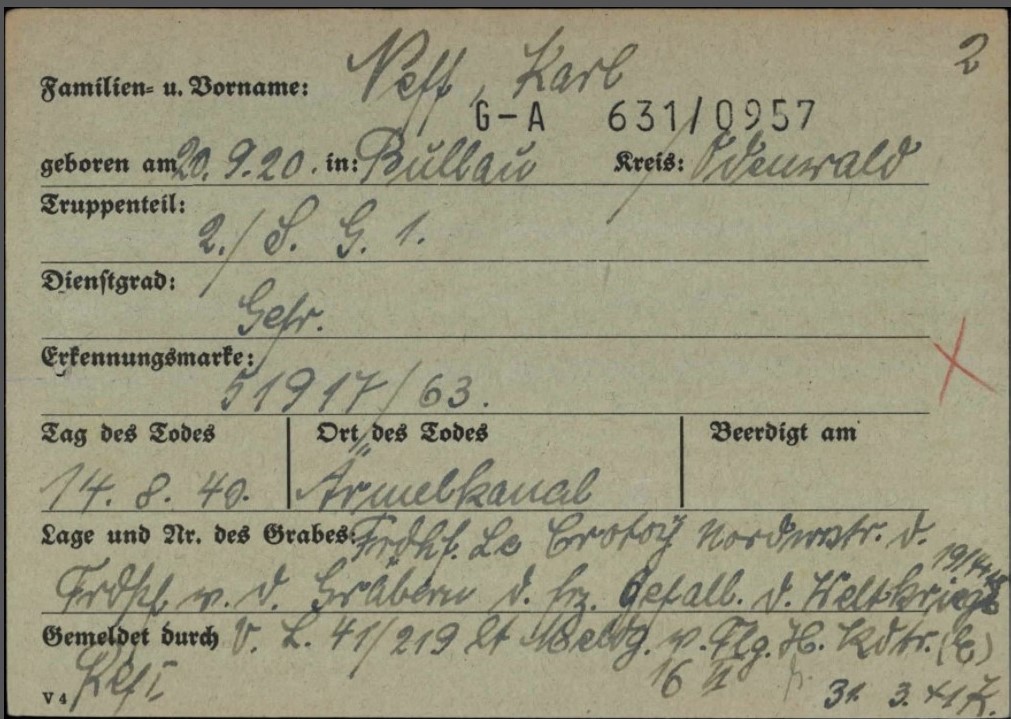 2
Familien- u. Vorname: Neff, Karl
G-A 631/0957
geboren am 20. 9. 20. in: Bullau Kreis: Odenwald
Truppenteil:
2./ S. G. 1.
Dienstgrad:
Gefr.
Erkennungsmarke:
51917/63.
Tag des Todes Ort des Todes Beerdigt am
14. 8. 40. Ärmelkanal
Lage und Nr. des Grabes: Frdhf. Le Crotoy d.
Frdhf. v. d. Gräbern d. frz. Gefall. d. Weltkriegs
Gemeldet durch V. L. 41/219 lt Meldg. v. Flg. H. Kdtr.
16 II 31. 3. 41
V 4